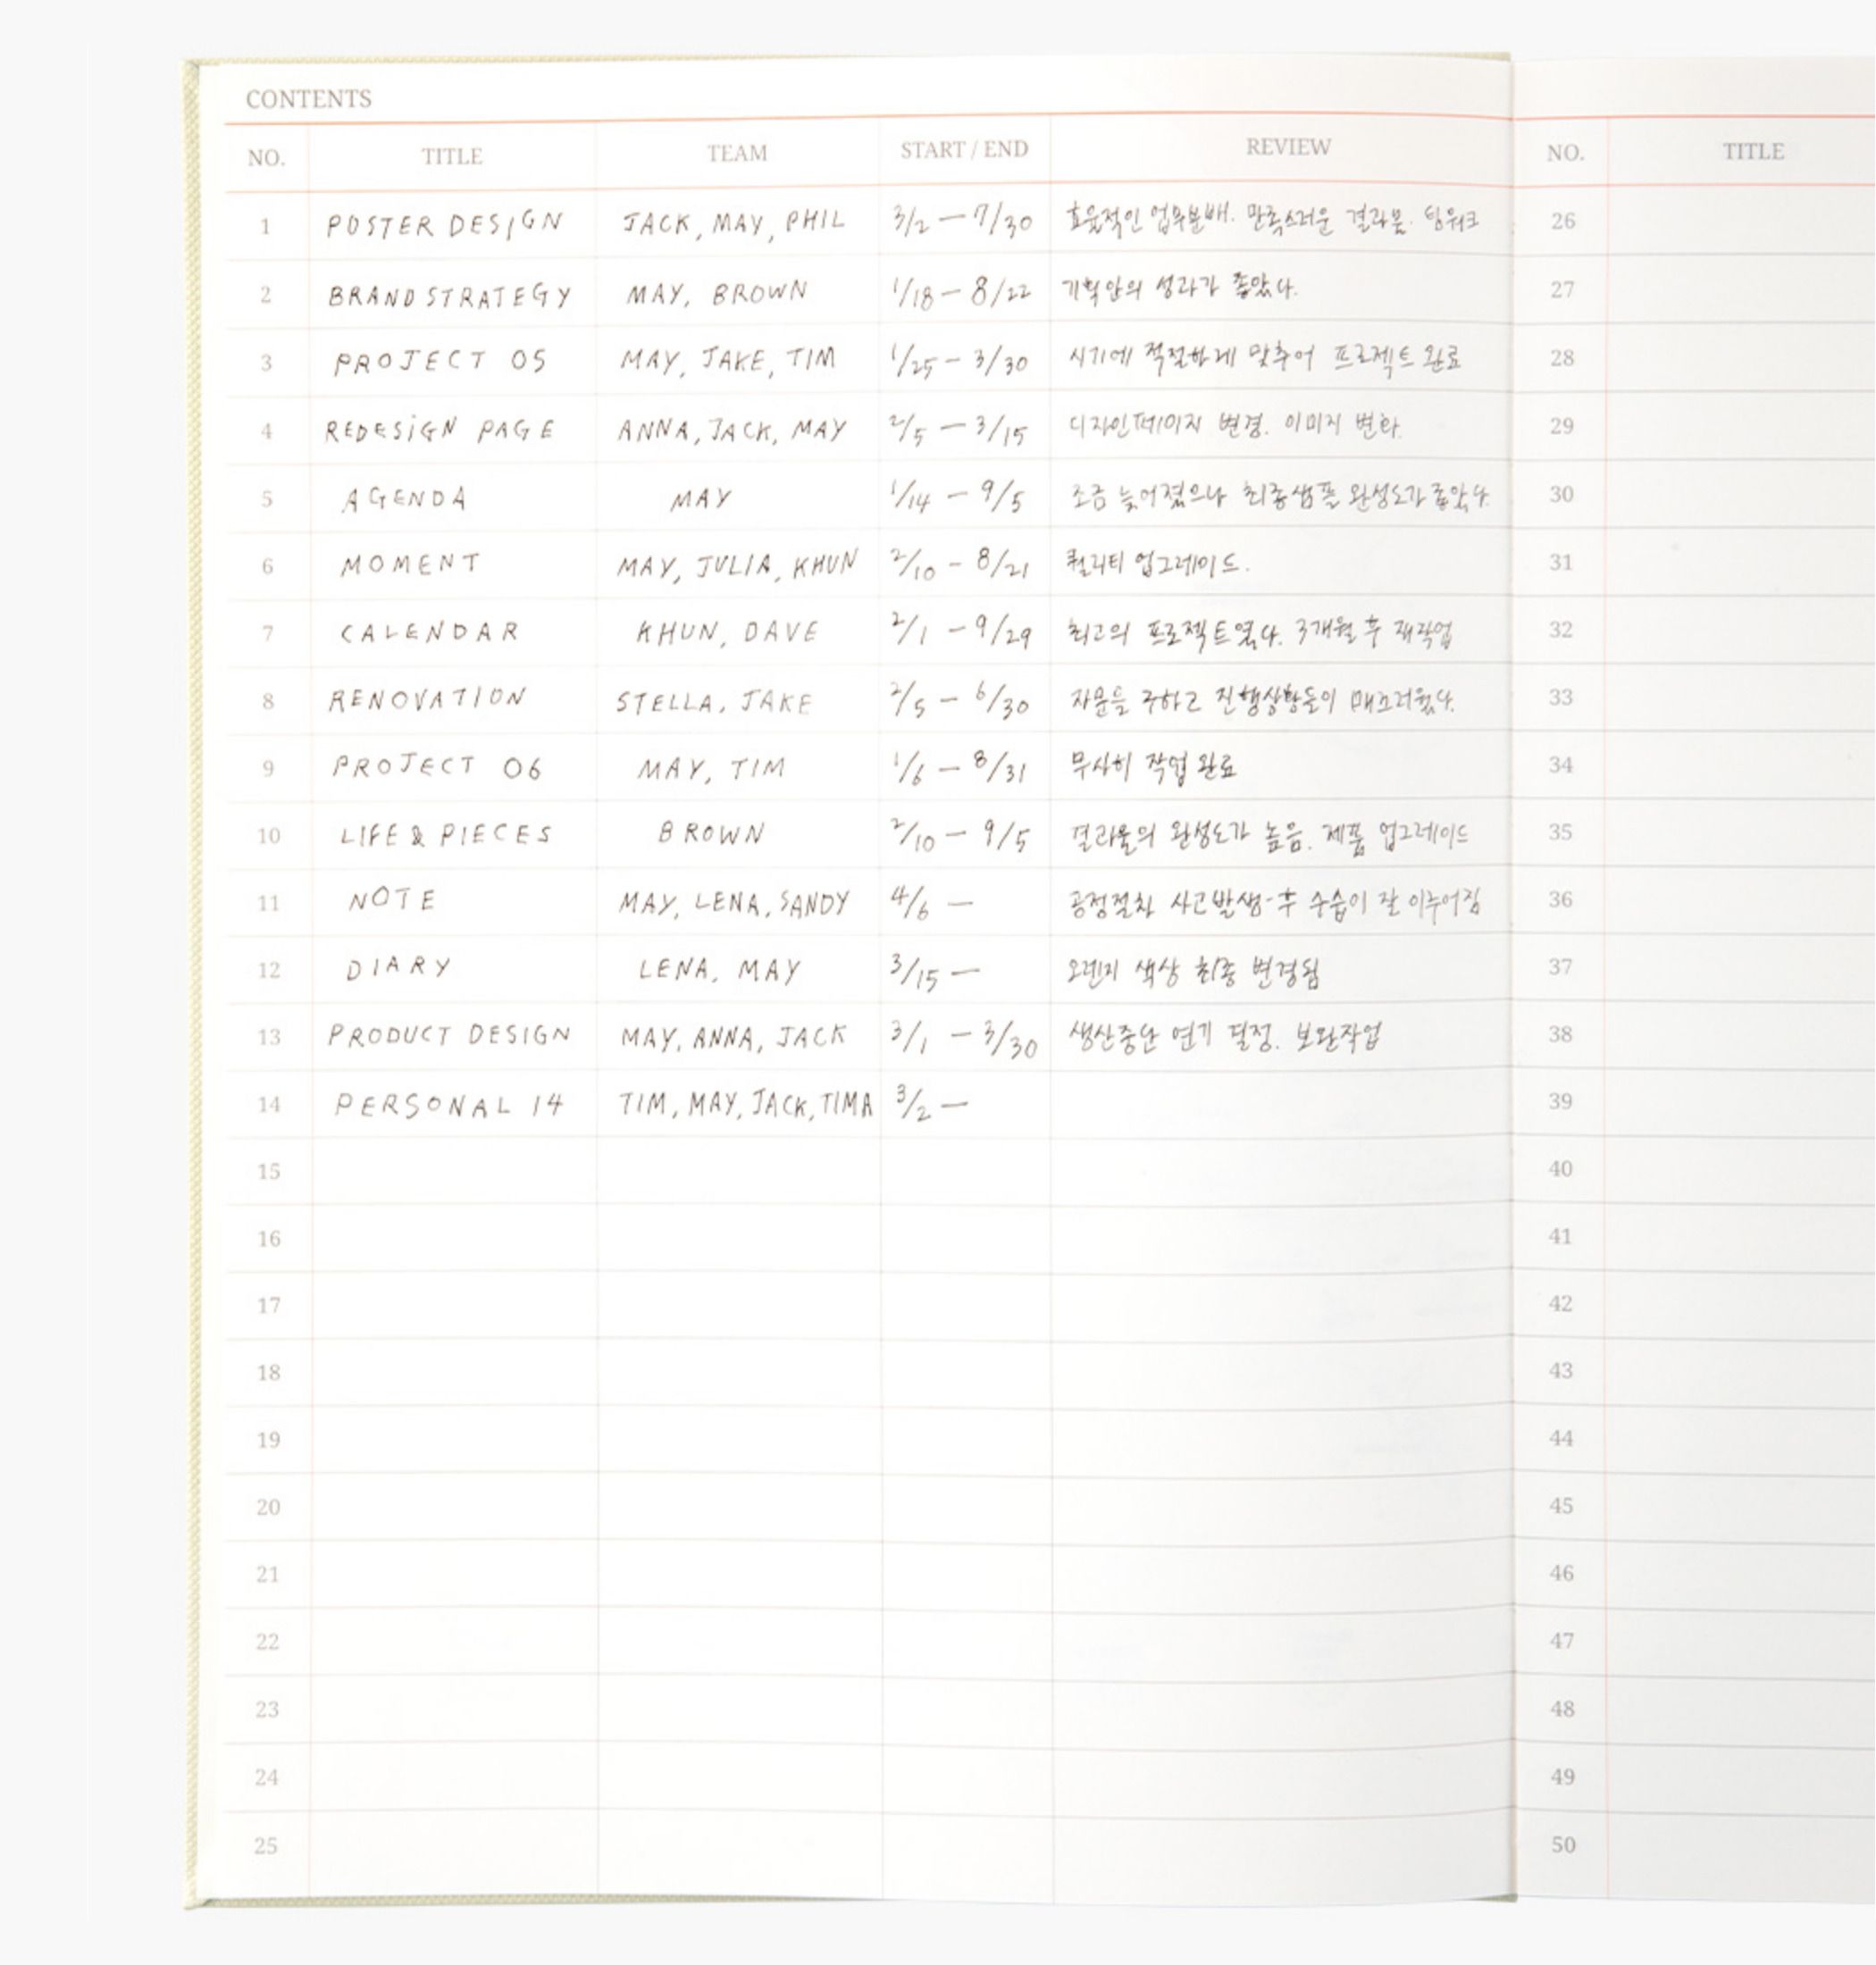 CONTENTS
NO. TITLE TEAM START / END REVIEW NO. TITLE
1 POSTER DESIGN JACK, MAY, PHIL 3/2 — 7/30 효율적인 업무분배. 만족스러운 결과물. 팀워크 26
2 BRAND STRATEGY MAY, BROWN 1/18 — 8/22 기획안의 성과가 좋았다. 27
3 PROJECT 05 MAY, JAKE, TIM 1/25 — 3/30 시기에 적절하게 맞추어 프로젝트 완료 28
4 REDESIGN PAGE ANNA, JACK, MAY 2/5 — 3/15 디자인페이지 변경. 이미지 변화. 29
5 AGENDA MAY 1/14 — 9/5 조금 늦어졌으나 최종샘플 완성도가 좋았다. 30
6 MOMENT MAY, JULIA, KHUN 2/10 - 8/21 퀄리티 업그레이드. 31
7 CALENDAR KHUN, DAVE 2/1 — 9/29 최고의 프로젝트였다. 3개월 후 재작업 32
8 RENOVATION STELLA, JAKE 2/5 — 6/30 자문을 구하고 진행상황들이 매끄러웠다. 33
9 PROJECT 06 MAY, TIM 1/6 — 8/31 무사히 작업 완료 34
10 LIFE & PIECES BROWN 2/10 — 9/5 결과물의 완성도가 높음. 제품 업그레이드 35
11 NOTE MAY, LENA, SANDY 4/6 — 공정절차 사고발생-후 수습이 잘 이루어짐 36
12 DIARY LENA, MAY 3/15 — 오렌지 색상 최종 변경됨 37
13 PRODUCT DESIGN MAY, ANNA, JACK 3/1 — 3/30 생산중단 연기 결정. 보완작업 38
14 PERSONAL 14 TIM, MAY, JACK, TIMA 3/2 — 39
15 40
16 41
17 42
18 43
19 44
20 45
21 46
22 47
23 48
24 49
25 50